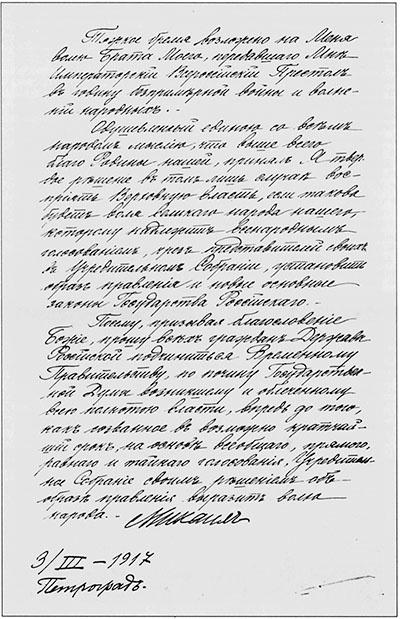 Тяжкое бремя возложено на Меня
волею Брата Моего, передавшего Мнѣ
Императорскій Всероссійскій Престолъ
въ годину безпримѣрной войны и волне-
ній народныхъ. -
Одушевленный единою со всѣмъ
народомъ мыслію, что выше всего
благо Родины нашей, принялъ Я твер-
дое рѣшеніе въ томъ лишь случаѣ вос-
пріять Верховную власть, если такова
будетъ воля великаго народа нашего,
которому надлежитъ всенароднымъ
голосованіемъ, чрезъ представителей своихъ
въ Учредительномъ Собраніи, установить
образъ правленія и новые основные
законы Государства Россійскаго. -
Посему, призывая благословеніе
Божіе, прошу всѣхъ гражданъ Державы
Россійской подчиниться Временному
Правительству, по почину Государствен-
ной Думы возникшему и облеченному
всею полнотою власти, впредь до того,
какъ созванное въ возможно кратчай-
шій срокъ, на основѣ всеобщаго, прямого,
равнаго и тайнаго голосованія, Учредитель-
ное Собраніе своимъ рѣшеніемъ объ
образѣ правленія выразитъ волю
народа. -
Михаилъ
3/III – 1917
Петроградъ.